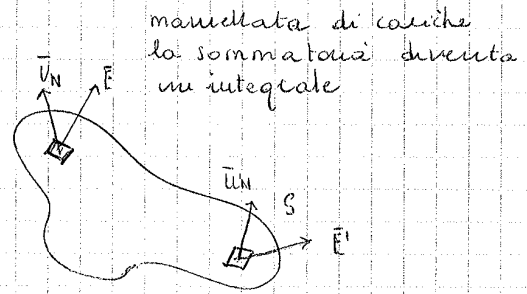 manciata di cariche
la sommatoria diventa
un integrale
ūN Ē
ūN S
Ē'